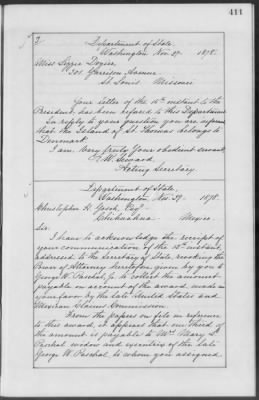 411
2
Department of State,
Washington Nov. 27. 1878.
Miss Lizzie Dozier,
Garrison Avenue,
St. Louis Missouri
Your letter of the 16th instant to the
President, has been referred to this Department.
In reply to your question you are informed
that the Island of St Thomas belongs to
Denmark.
I am, Very truly Your obedient servant
F. W. Seward.
Acting Secretary
Department of State,
Washington, Nov. 27. 1878.
Christopher Esq
Chihuahua Mexico
Sir
I have to acknowledge the receipt of
your communication of the instant,
addressed to the Secretary of State, revoking the
Power of Attorney heretofore given by you to
George W. Paschal, Jr. to collect the amounts
payable on account of the award made in
your favor by the late United States and
Mexican Claims Commission.
From the papers on file in reference
to this award, it appears that one third of
the amount is payable to Mrs Mary
Paschal widow and executrix of the late
George W. Paschal to whom you assigned